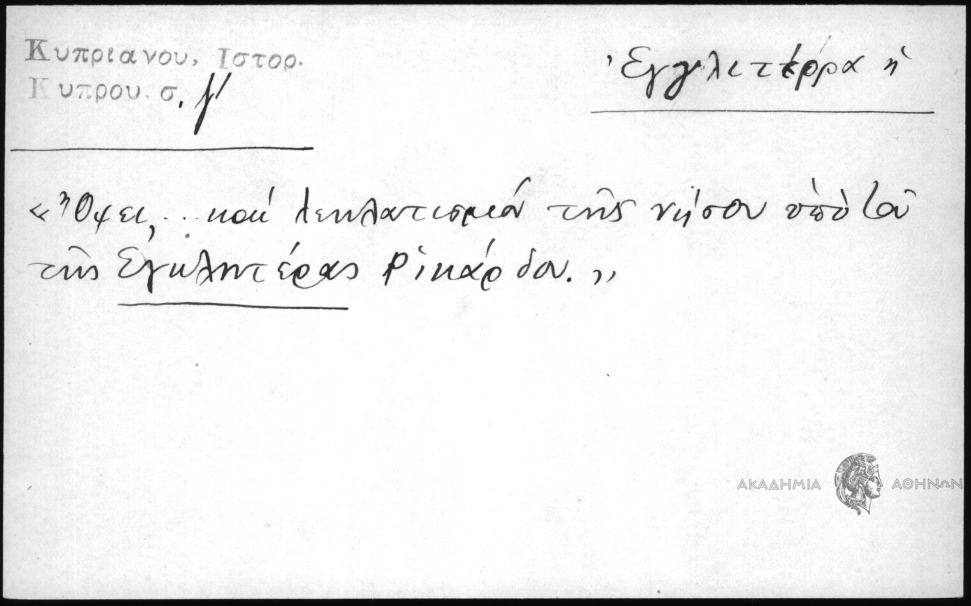 Κυπριανου, Ιστορ.
Κυπρου. σ.
Ἐγγλιτέρρα ἡ
« Ὄψει, ... καὶ λεηλατισμὸν τῆς νήσου ὑπὸ τοῦ
τῆς Ἐγκλητέρας Ρικάρδου. »
ΑΚΑΔΗΜΙΑ ΑΘΗΝΩΝ